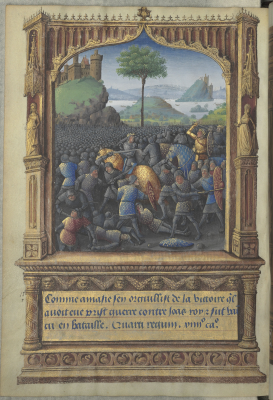 Comme amasie sen orcuillist de la victoire
auoit eue prist guerre contre ioas roy fut vai
cu en bataille. Quarti regum. caº.